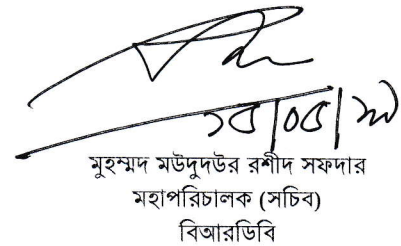 মুহম্মদ মউদুদউর রশীদ সফদার
মহাপরিচালক (সচিব)
বিআরডিবি